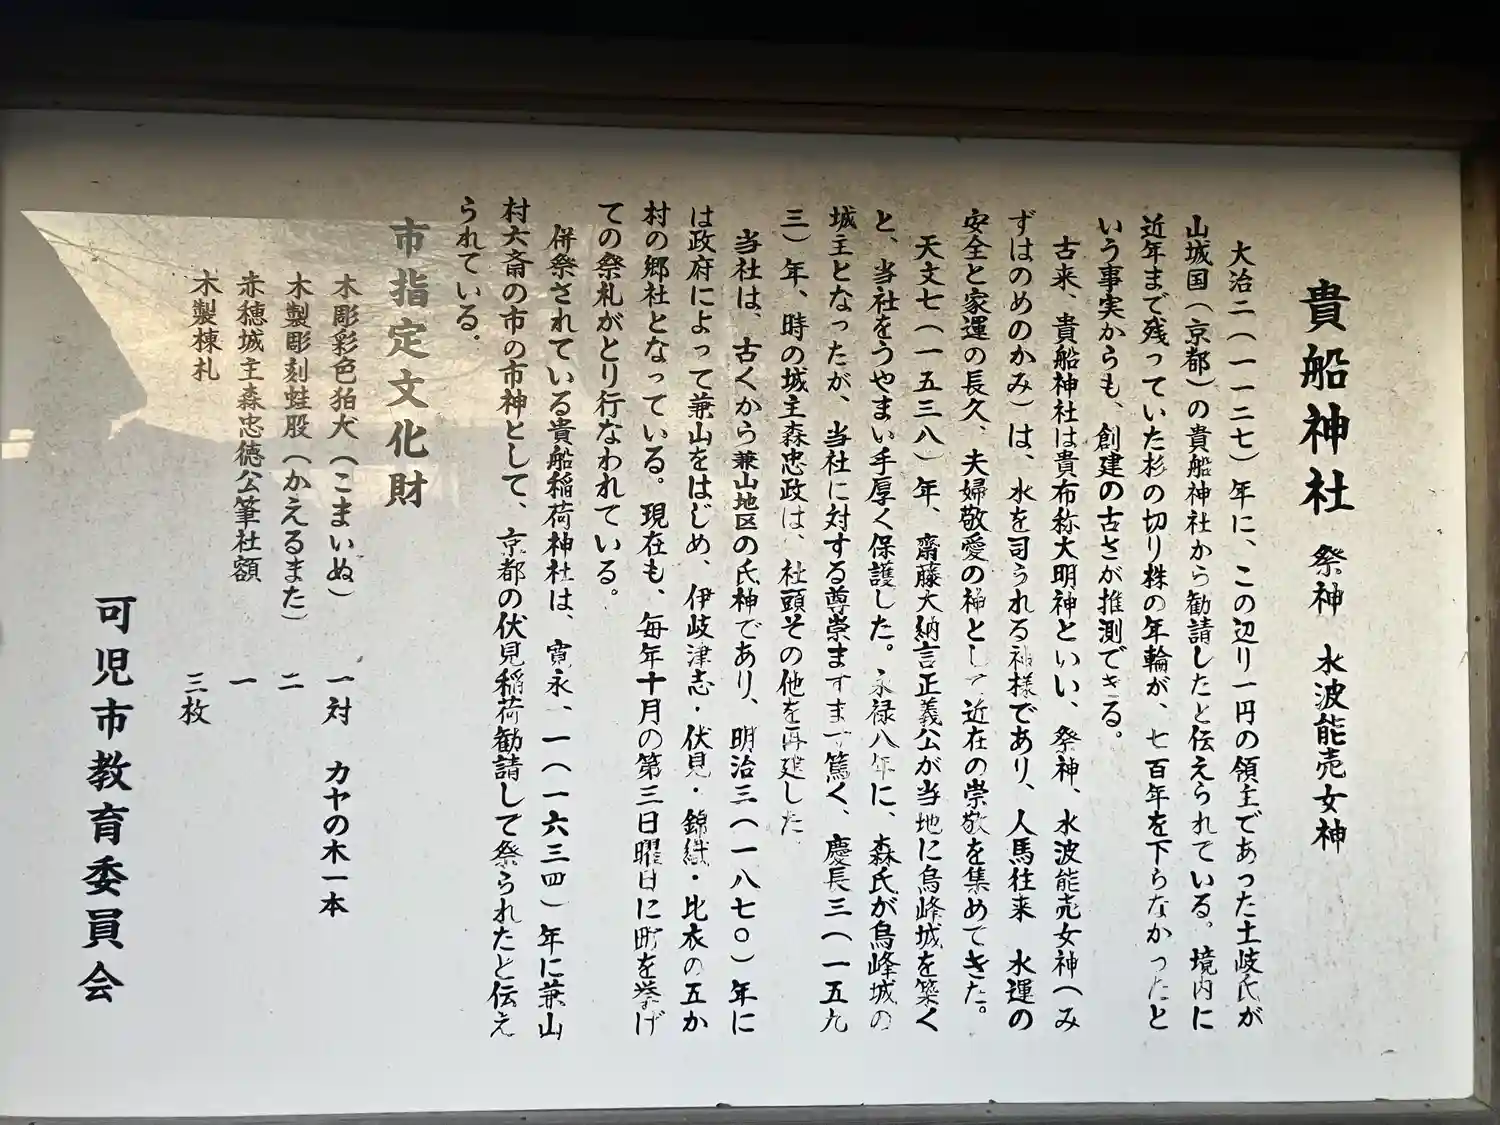 貴船神社　祭神　水波能売女神
大治二(一一二七)年に、この辺り一円の領主であった土岐氏が
山城国(京都)の貴船神社から勧請したと伝えられている。境内に
近年まで残っていた杉の切り株の年輪が、七百年を下らなかったと
いう事実からも、創建の古さが推測できる。
古来、貴船神社は貴布称大明神といい、祭神、水波能売女神(み
ずはのめのかみ)は、水を司うれる神様であり、人馬往来　水運の
安全と家運の長久、夫婦敬愛の神として近在の崇敬を集めてきた。
天文七(一五三八)年、齋藤大納言正義公が当地に烏峰城を築く
と、当社をうやまい手厚く保護した。永禄八年に、森氏が烏峰城の
城主となったが、当社に対する尊崇ますます篤く、慶長三(一五九
三)年、時の城主森忠政は、社頭その他を再建した
当社は、古くから兼山地区の氏神であり、明治三(一八七〇)年に
は政府によって兼山をはじめ、伊岐津志・伏見・錦織・比衣の五か
村の郷社となっている。現在も、毎年十月の第三日曜日に町を挙げ
ての祭礼がとり行なわれている。
併祭されている貴船稲荷神社は、寛永、一(一六三四)年に兼山
村六斎の市の市神として、京都の伏見稲荷勧請して祭られたと伝え
られている。
市指定文化財
木彫彩色狛犬(こまいぬ)　一対　カヤの木一本
木製彫刻蛙股(かえるまた)　二
赤穂城主森忠徳公筆社額　一
木製棟札　三枚
可児市教育委員会